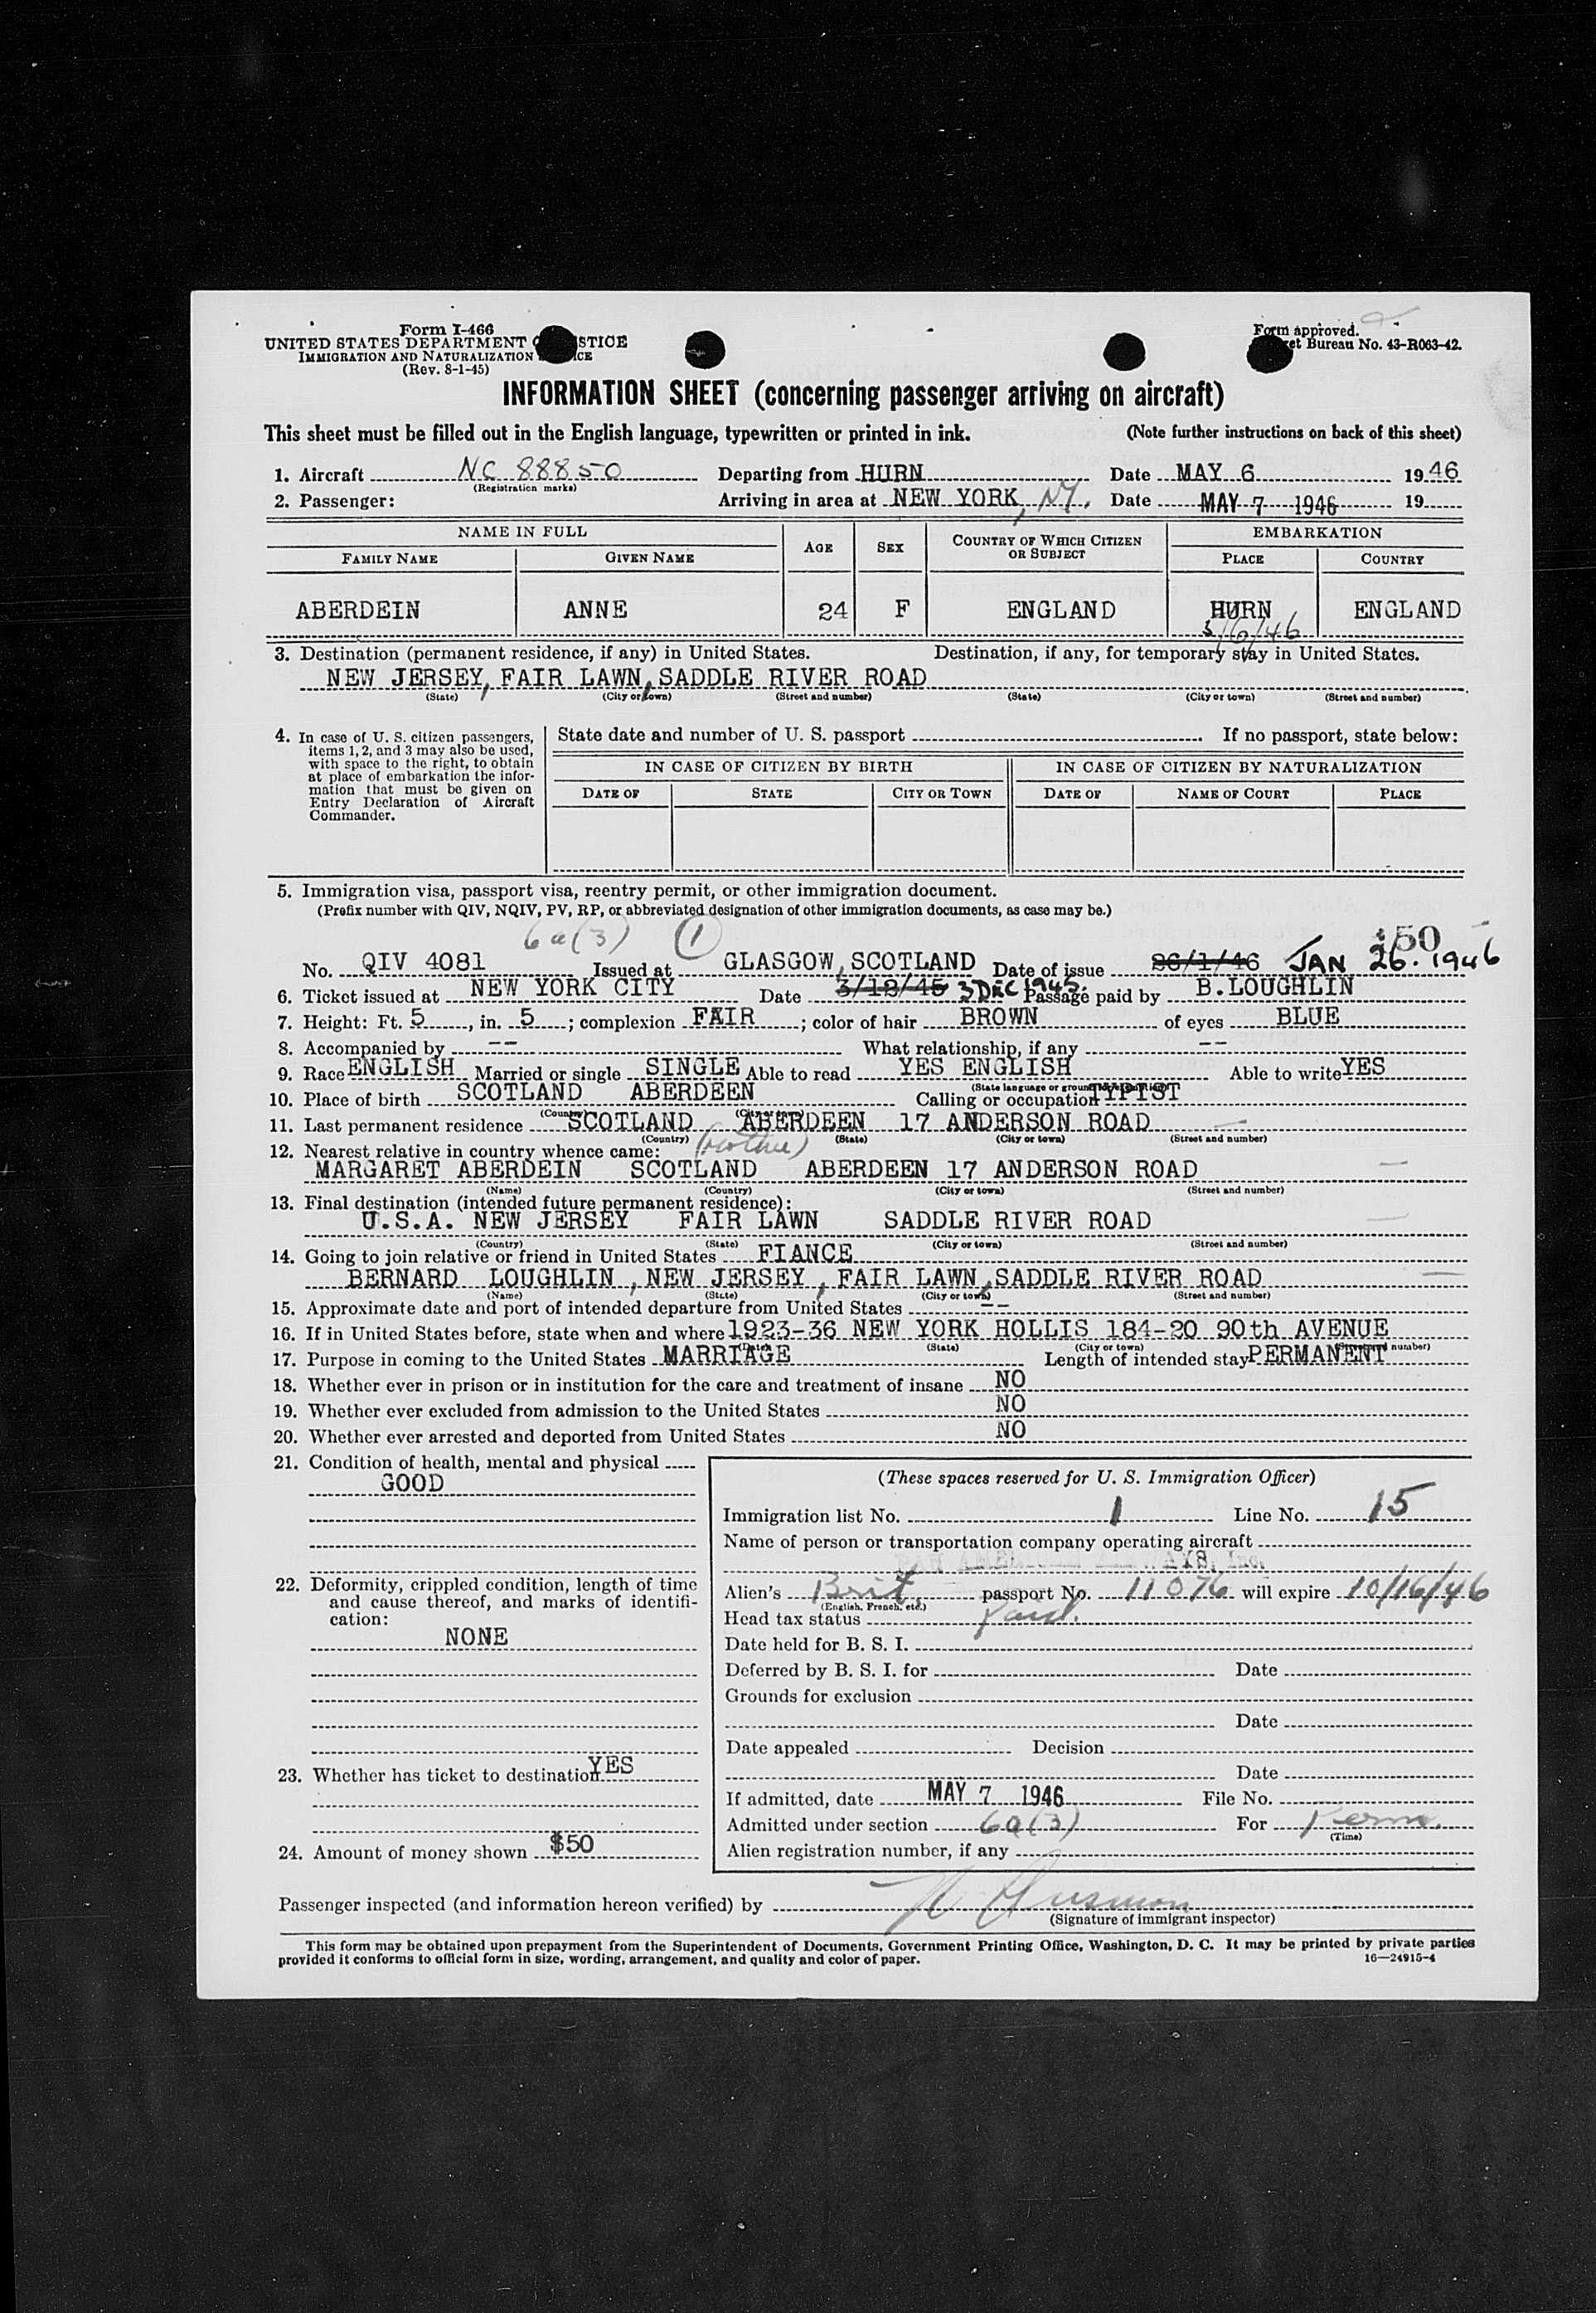 Form I-466
UNITED STATES DEPARTMENT STICE
IMMIGRATION AND NATURALIZATION ICE
(Rev. 8-1-45)
Form approved.
et Bureau No. 43-R063-42.
INFORMATION SHEET (concerning passenger arriving on aircraft)
This sheet must be filled out in the English language, typewritten or printed in ink. (Note further instructions on back of this sheet)
1. Aircraft NC 88850 Departing from HURN Date MAY 6 1946
(Registration marks)
2. Passenger: Arriving in area at NEW YORK, NY. Date MAY 7 1946 19
NAME IN FULL AGE SEX COUNTRY OF WHICH CITIZEN OR SUBJECT EMBARKATION
FAMILY NAME GIVEN NAME PLACE COUNTRY
ABERDEIN ANNE 24 F ENGLAND HURN ENGLAND
5/6/46
3. Destination (permanent residence, if any) in United States. Destination, if any, for temporary stay in United States.
NEW JERSEY, FAIR LAWN, SADDLE RIVER ROAD
(State) (City or town) (Street and number) (State) (City or town) (Street and number)
4. In case of U. S. citizen passengers,
items 1, 2, and 3 may also be used,
with space to the right, to obtain
at place of embarkation the infor-
mation that must be given on
Entry Declaration of Aircraft
Commander.
State date and number of U. S. passport If no passport, state below:
IN CASE OF CITIZEN BY BIRTH IN CASE OF CITIZEN BY NATURALIZATION
DATE OF STATE CITY OR TOWN DATE OF NAME OF COURT PLACE
5. Immigration visa, passport visa, reentry permit, or other immigration document.
(Prefix number with QIV, NQIV, PV, RP, or abbreviated designation of other immigration documents, as case may be.)
6a(3) 1 50
No. QIV 4081 Issued at GLASGOW, SCOTLAND Date of issue 26/1/46 JAN 26. 1946
6. Ticket issued at NEW YORK CITY Date 3/12/45 3 DEC 1945. Passage paid by B.LOUGHLIN
7. Height: Ft. 5, in. 5; complexion FAIR; color of hair BROWN of eyes BLUE
8. Accompanied by -- What relationship, if any --
9. Race ENGLISH Married or single SINGLE Able to read YES ENGLISH Able to write YES
10. Place of birth SCOTLAND ABERDEEN Calling or occupation TYPIST
11. Last permanent residence SCOTLAND ABERDEEN 17 ANDERSON ROAD
(Country) (State) (City or town) (Street and number)
12. Nearest relative in country whence came: (mother)
MARGARET ABERDEIN SCOTLAND ABERDEEN 17 ANDERSON ROAD
(Name) (Country) (City or town) (Street and number)
13. Final destination (intended future permanent residence):
U.S.A. NEW JERSEY FAIR LAWN SADDLE RIVER ROAD
(Country) (State) (City or town) (Street and number)
14. Going to join relative or friend in United States FIANCE
BERNARD LOUGHLIN, NEW JERSEY, FAIR LAWN, SADDLE RIVER ROAD
(Name) (State) (City or town) (Street and number)
15. Approximate date and port of intended departure from United States --
16. If in United States before, state when and where 1923-36 NEW YORK HOLLIS 184-20 90th AVENUE
(Date) (State) (City or town) (Street and number)
17. Purpose in coming to the United States MARRIAGE Length of intended stay PERMANENT
18. Whether ever in prison or in institution for the care and treatment of insane NO
19. Whether ever excluded from admission to the United States NO
20. Whether ever arrested and deported from United States NO
21. Condition of health, mental and physical
GOOD
22. Deformity, crippled condition, length of time
and cause thereof, and marks of identifi-
cation:
NONE
23. Whether has ticket to destination YES
24. Amount of money shown $50
(These spaces reserved for U. S. Immigration Officer)
Immigration list No. 1 Line No. 15
Name of person or transportation company operating aircraft
Alien's Brit. passport No. 11076 will expire 10/16/46
(English, French, etc.)
Head tax status Paid.
Date held for B. S. I.
Deferred by B. S. I. for Date
Grounds for exclusion
Date
Date appealed Decision
Date
If admitted, date MAY 7 1946 File No.
Admitted under section 6a(3) For Perm.
(Time)
Alien registration number, if any
Passenger inspected (and information hereon verified) by
(Signature of immigrant inspector)
This form may be obtained upon prepayment from the Superintendent of Documents, Government Printing Office, Washington, D. C. It may be printed by private parties
provided it conforms to official form in size, wording, arrangement, and quality and color of paper. 16—24915-4